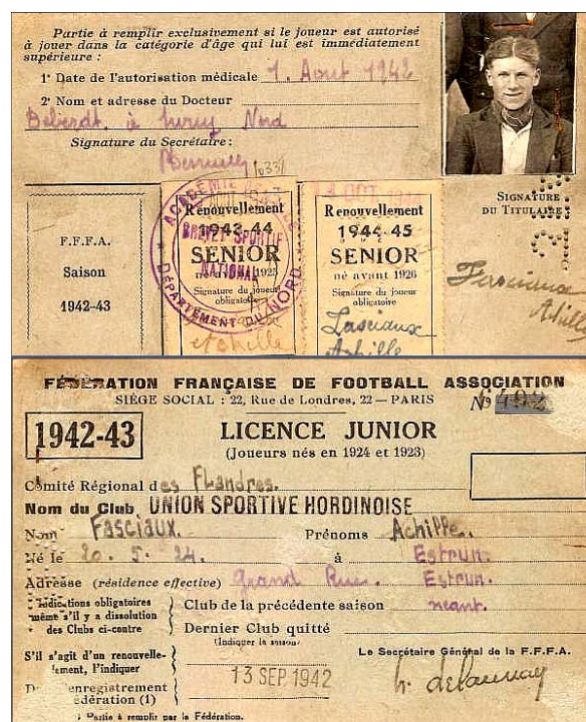 Partie à remplir exclusivement si le joueur est autorisé
à jouer dans la catégorie d'âge qui lui est immédiatement
supérieure :
1° Date de l'autorisation médicale 1. Aout 1942
2° Nom et adresse du Docteur
à Nord
Signature du Secrétaire :
F.F.F.A.
Saison
1942-43
Renouvellement
1943-44
SENIOR
Signature du joueur
obligatoire
Achille
ACADÉMIE
BREVET SPORTIF
NATIONAL
DÉPARTEMENT DU NORD
Renouvellement
1944-45
SENIOR
né avant 1926
Signature du joueur
obligatoire
Fasciaux
Achille
SIGNATURE
DU TITULAIRE
Fasciaux
Achille
FÉDÉRATION FRANÇAISE DE FOOTBALL ASSOCIATION
SIÈGE SOCIAL : 22, Rue de Londres, 22 — PARIS
N°
1942-43
LICENCE JUNIOR
(Joueurs nés en 1924 et 1923)
Comité Régional des Flandres.
Nom du Club UNION SPORTIVE HORDINOISE
Nom Fasciaux. Prénoms Achille.
Né le 20. 5. 24. à Estrun.
Adresse (résidence effective) Grand Rue. Estrun.
Indications obligatoires
même s'il y a dissolution
des Clubs ci-contre
Club de la précédente saison neant.
Dernier Club quitté
(Indiquer la saison)
S'il s'agit d'un renouvelle-
ment, l'indiquer
Le Secrétaire Général de la F.F.F.A.
13 SEP 1942
h. delaunay
enregistrement
Fédération (1)
Partie à remplir par la Fédération.